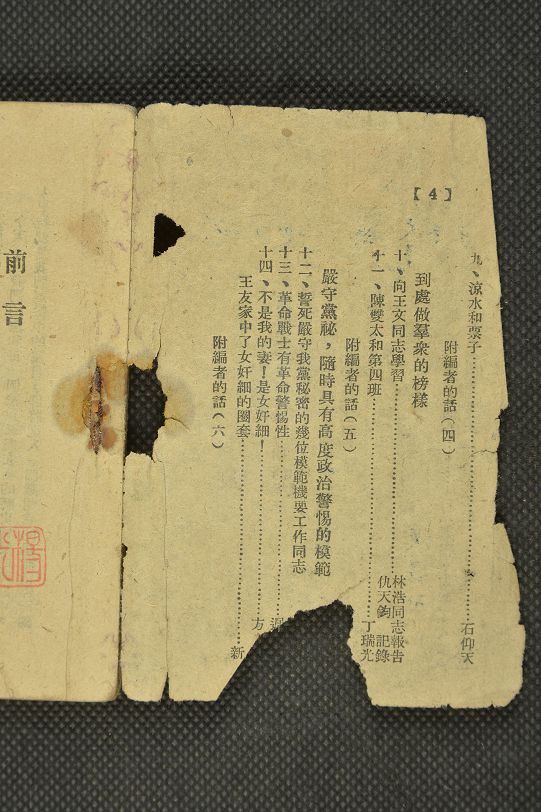 【4】
九、涼水和栗子…………石仰天
附編者的話（四）
到處做羣衆的榜樣
十、向王文同志學習…………林浩同志報告
仇天鈞 記錄
十一、陳雙太和第四班…………丁瑞光
附編者的話（五）
嚴守黨祕，隨時具有高度政治警惕的模範
十二、誓死嚴守我黨秘密的幾位模範機要工作同志
十三、革命戰士有革命警惕性…………
十四、不是我的妻！是女奸細！…………方
王友家中了女奸細的圈套…………新
附編者的話（六）
前言